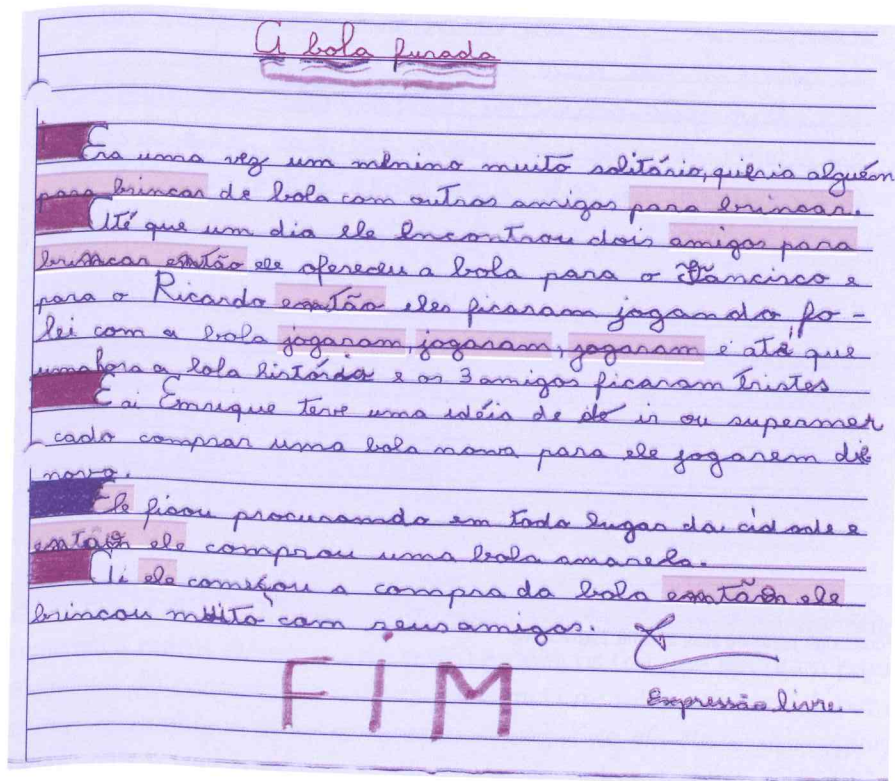 A bola furada
Era uma vez um menino muito solitário, queria alguém
para brincar de bola com outros amigos para brincar.
Até que um dia ele encontrou dois amigos para
brincar então ele ofereceu a bola para o Francisco e
para o Ricardo então eles ficaram jogando fo-
lei com a bola jogaram, jogaram, jogaram e até que
uma hora a bola e os 3 amigos ficaram tristes
E ai Enrique teve uma idéia de ir ou supermer
cado comprar uma bola nova para ele jogarem de
novo.
Ele ficou procurando em todo lugar da cidade e
então ele comprou uma bola amarela.
Ai ele começou a compra da bola então ele
brincou muito com seus amigos.
FIM
Expressão livre